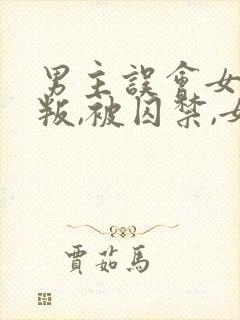 男主誤會女
叛,被囚禁,女
賈茹馬